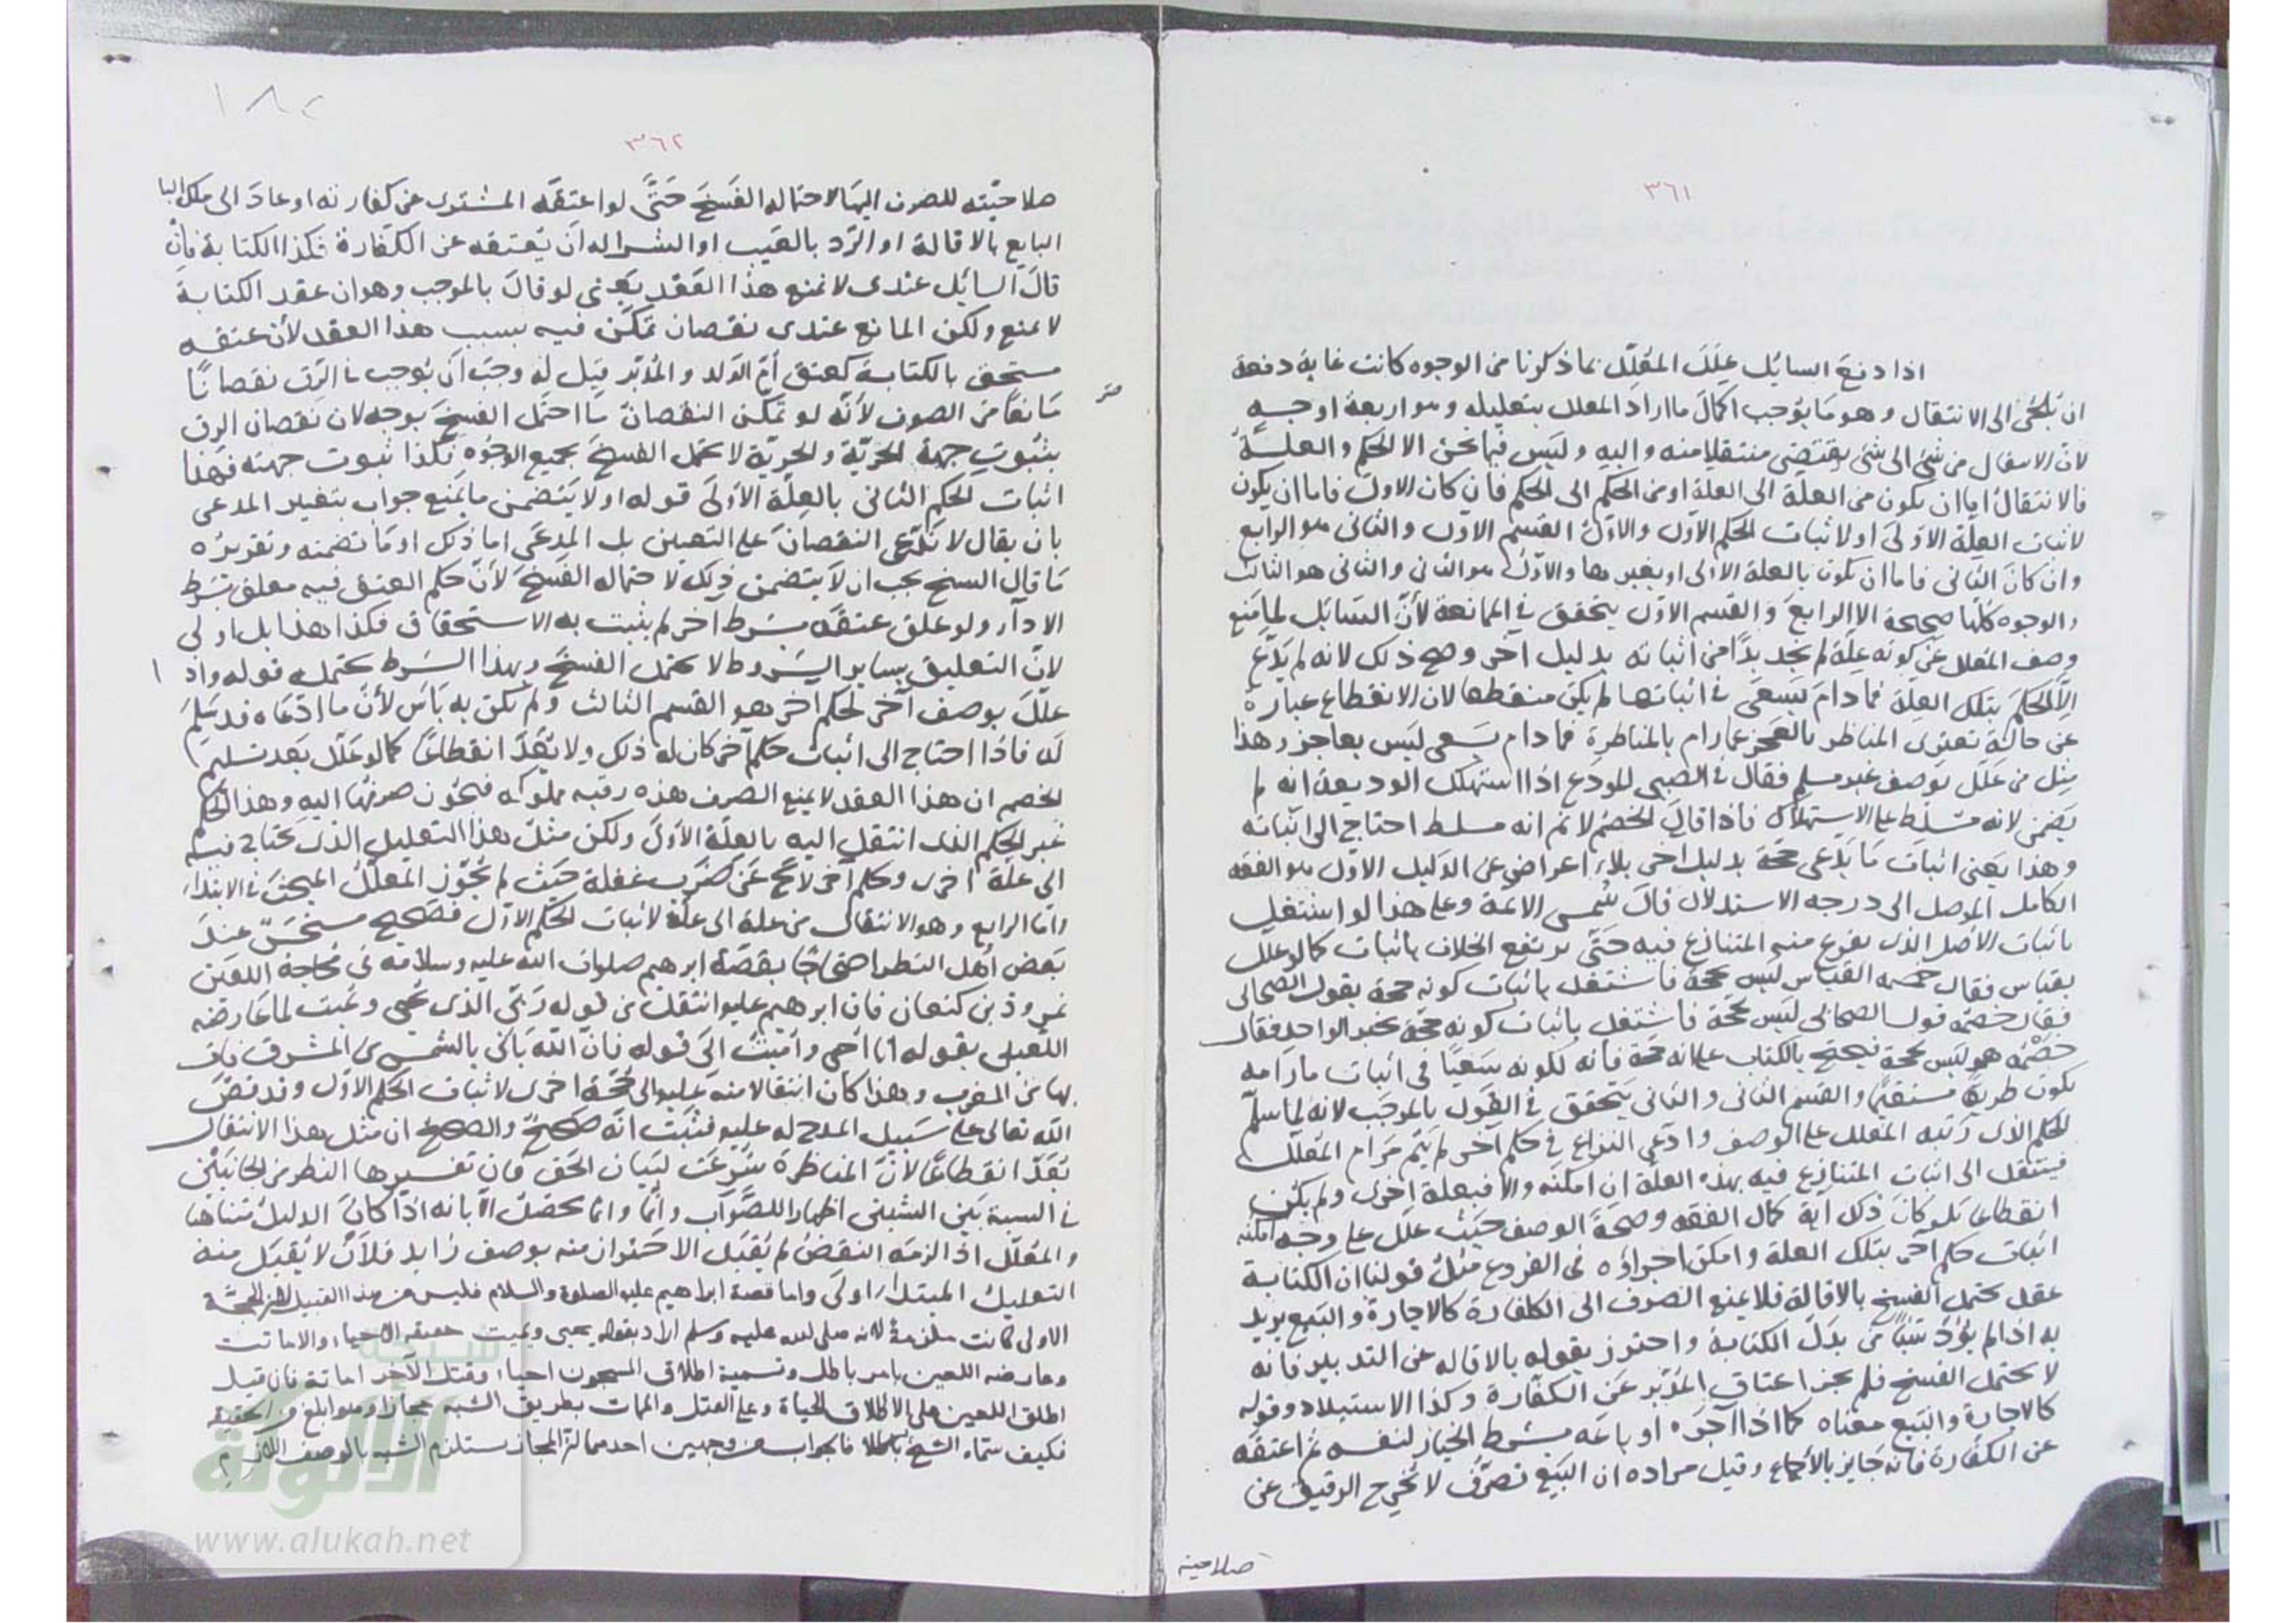 ٣٦١
اذا دفع السايل علل المعلل بما ذكرنا من الوجوه كانت غاية دفعه
ان يلجئ الى الانتقال وهو ما يوجب اكمال ما اراد المعلل بتعليله وهو اربعة اوجه
لان الانتقال من شئ الى شئ يقتضى منتقلا منه واليه وليس فيما نحن الا الحكم والعلة
فالانتقال اما ان يكون من العلة الى العلة او من الحكم الى الحكم فان كان الاول فاما ان يكون
لاثبات العلة الاولى او لاثبات الحكم الاول والاول القسم الاول والثانى هو الرابع
وان كان الثانى فاما ان يكون بالعلة الاولى او بغيرها والاول هو الثانى والثانى هو الثالث
والوجوه كلها صحيحة الا الرابع والقسم الاول يتحقق في الممانعة لأن السائل لما منع
وصف المعلل عن كونه علة لم يجد بدا من اثباته بدليل اخر وصح ذلك لانه لم يدع
الا الحكم بتلك العلة فما دام يسعى في اثباتها لم يكن منقطعا لان الانقطاع عبارة
عن حالة تعترى المناظر بالعجز عما رام بالمناظرة فما دام يسعى ليس بعاجز وهذا
مثل من علل بوصف غير مسلم فقال في الصبى المودع اذا استهلك الوديعة انه لم
يضمن لانه مسلط على الاستهلاك فاذا قال الخصم لا نم انه مسلط احتاج الى اثباته
وهذا يعنى اثبات ما يدعى حجة بدليل اخر بلا اعراض عن الدليل الاول هو الفقه
الكامل الموصل الى درجه الاستدلال قال شمس الائمة وعلى هذا لو اشتغل
باثبات الاصل الذى يفرع منه المتنازع فيه حتى يرتفع الخلاف باثبات كما لو علل
بقياس فقال خصمه القياس ليس بحجة فاشتغل باثبات كونه حجة بقول الصحابى
فقال خصمه قول الصحابى ليس بحجة فاشتغل باثبات كونه حجة بخبر الواحد فقال
خصمه هو ليس بحجة فيحتج بالكتاب على انه حجة فانه لكونه سعيا في اثبات ما رامه
يكون طريقا مستقيما والقسم الثانى والثانى يتحقق في القول بالموجب لانه لما سلم
الحكم الذى رتبه المعلل على الوصف وادعى النزاع في حكم آخر لم يتم مرام المعلل
فينتقل الى اثبات المتنازع فيه بهذه العلة ان امكنه والا فبعلة اخرى ولم يكن
انقطاعا بل كان ذلك آية كمال الفقه وصحة الوصف حيث علل على وجه امكنه
اثبات حكم آخر بتلك العلة وامكن اجراؤه في الفروع مثل قولنا ان الكتابة
عقد يحتمل الفسخ بالاقالة فلا يمنع الصرف الى الكفارة كالاجارة والبيع يريد
به اذا لم يؤد شيئا من بدل الكتابة واحترز بقوله بالاقاله عن التدبير فانه
لا يحتمل الفسخ فلم يجز اعتاق المدبر عن الكفارة وكذا الاستيلاد وقوله
كالاجارة والبيع معناه كما اذا آجره او باعه بشرط الخيار لنفسه ثم اعتقه
عن الكفارة فانه جايز بالأجماع وقيل مراده ان البيع تصرف لا يخرج الرقيق عن
صلاحيته
١٨٢
٣٦٢
صلاحيته للصرف اليها لاحتماله الفسخ حتى لو اعتقه المشترى عن كفارته او عاد الى ملك
البايع بالاقالة او الرد بالعيب او الشرا له ان يعتقه عن الكفارة فكذا الكتابة فان
قال السايل عندى لا يمنع هذا العقد يعنى لو قال بالموجب وهو ان عقد الكتابة
لا يمنع ولكن المانع عندى نقصان تمكن فيه بسبب هذا العقد لأن عتقه
مستحق بالكتابة كعتق أم الولد والمدبر قيل له وجب أن يوجب في الرق نقصانا
مانعا من الصرف لأنه لو تمكن النقصان ما احتمل الفسخ بوجه لان نقصان الرق
بثبوت جهة الحرية والحرية لا تحتمل الفسخ بجميع الوجوه فكذا ثبوت جهته فهذا
اثبات الحكم الثانى بالعلة الأولى قوله او لا يتضمن ما يمنع جواب بتغير المدعى
بان يقال لا ندعى النقصان على التعيين بل المدعى اما ذلك او ما تضمنه وتقريره
ما قال الشيخ يجب ان لا يتضمن ذلك لاحتماله الفسخ لأن حكم العتق فيه معلق بشرط
الادآء ولو علق عتقه بشرط اخر لم يثبت به الاستحقاق فكذا هذا بل اولى
لان التعليق بساير الشروط لا يحتمل الفسخ وبهذا الشرط يحتمله قوله واذا
علل بوصف آخر لحكم اخر هو القسم الثالث ولم يكن به بأس لأن ما ادعاه قد سلم
له فاذا احتاج الى اثبات حكم آخر كان له ذلك ولا يعد انقطاعا كما لو علل بعد تسليم
الخصم ان هذا العقد لا يمنع الصرف هذه رقبة مملوكة فيجوز صرفها اليه وهذا الحكم
غير الحكم الذى انتقل اليه بالعلة الأولى ولكن مثل هذا التعليل الذى يحتاج فيه
الى علة اخرى وحكم آخر لا يخ عن ضرب غفلة حيث لم يجوز المعلل المبحث في الابتداء
واما الرابع وهو الانتقال من علة الى علة لاثبات الحكم الاول فصحيح مستحسن عند
بعض أهل النظر احتجاجا بقصة ابرهيم صلوات الله عليه وسلامه في محاجة اللعين
نمروذ بن كنعان فان ابرهيم عليه انتقل من قوله ربى الذى يحيى ويميت لما عارضه
اللعين بقوله انا احى واميت الى قوله فان الله يأتى بالشمس من المشرق فات
بها من المغرب وهذا كان انتقالا منه عليه الى حجة اخرى لاثبات الحكم الاول وقد نص
الله تعالى على سبيل المدح له عليه فثبت انه صحيح والصحيح ان مثل هذا الانتقال
يعد انقطاعا لان المناظرة شرعت لبيان الحق فان تفسيرها النظر من الجانبين
في النسبة بين الشيئين اظهارا للصواب وانما يحصل الابانه اذا كان الدليل متناهيا
والمعلل اذ الزمه النقض لم يقبل الاحتراز منه بوصف زايد فلأن لا يقبل منه
التعليل المبتدا اولى واما قصة ابراهيم عليه الصلوة والسلام فليس من هذا القبيل الحجة
الاولى كانت ملزمة لانه صلى الله عليه وسلم اراد بقوله يحيى ويميت حقيقه الاحياء والاماتت
وعارضه اللعين بامر باطل وتسمية اطلاق المسجون احياء وقتل الآخر اماتة فان قيل
اطلق اللعين على الاطلاق الحياة وعلى القتل والممات بطريق الشبه مجازا وهو ابلغ من الحقيقه
فكيف سماه الشيخ باطلا فالجواب من وجهين احدهما ان المجاز يستلزم الشبه بالوصف اللازم
شبكة
الألوكة
www.alukah.net